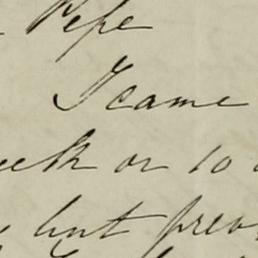 Pepe
I came
eek or 10
but prev